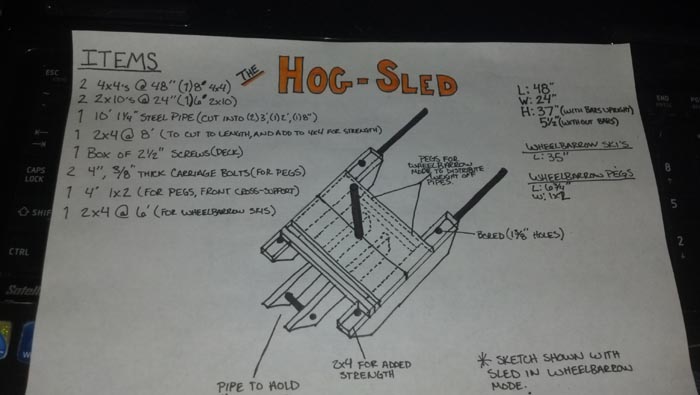 ITEMS
2 4x4's @ 48" (1) 8' 4x4)
2 2x10's @ 24" (1) 6' 2x10)
1 10' 1 1/4" STEEL PIPE (CUT INTO (2) 3', (1) 2', (1) 8")
1 2x4 @ 8' (TO CUT TO LENGTH, AND ADD TO 4x4 FOR STRENGTH)
1 BOX OF 2 1/2" SCREWS (DECK)
2 4", 3/8" THICK CARRIAGE BOLTS (FOR PEGS)
1 4' 1x2 (FOR PEGS, FRONT CROSS-SUPPORT)
1 2x4 @ 6' (FOR WHEELBARROW SKIS)
THE HOG-SLED
L: 48"
W: 24"
H: 37" (WITH BARS UPRIGHT)
5 1/2" (WITHOUT BARS)
WHEELBARROW SKI'S
L: 35"
WHEELBARROW PEGS
W: 1x2
PEGS FOR
WHEELBARROW
MODE TO DISTRIBUTE
WEIGHT OFF
PIPES.
BORED (1 3/8" HOLES)
2x4 FOR ADDED
STRENGTH
PIPE TO HOLD
* SKETCH SHOWN WITH
SLED IN WHEELBARROW
MODE.
ESC
CAPS
LOCK
SHIFT
CTRL
Satell
END